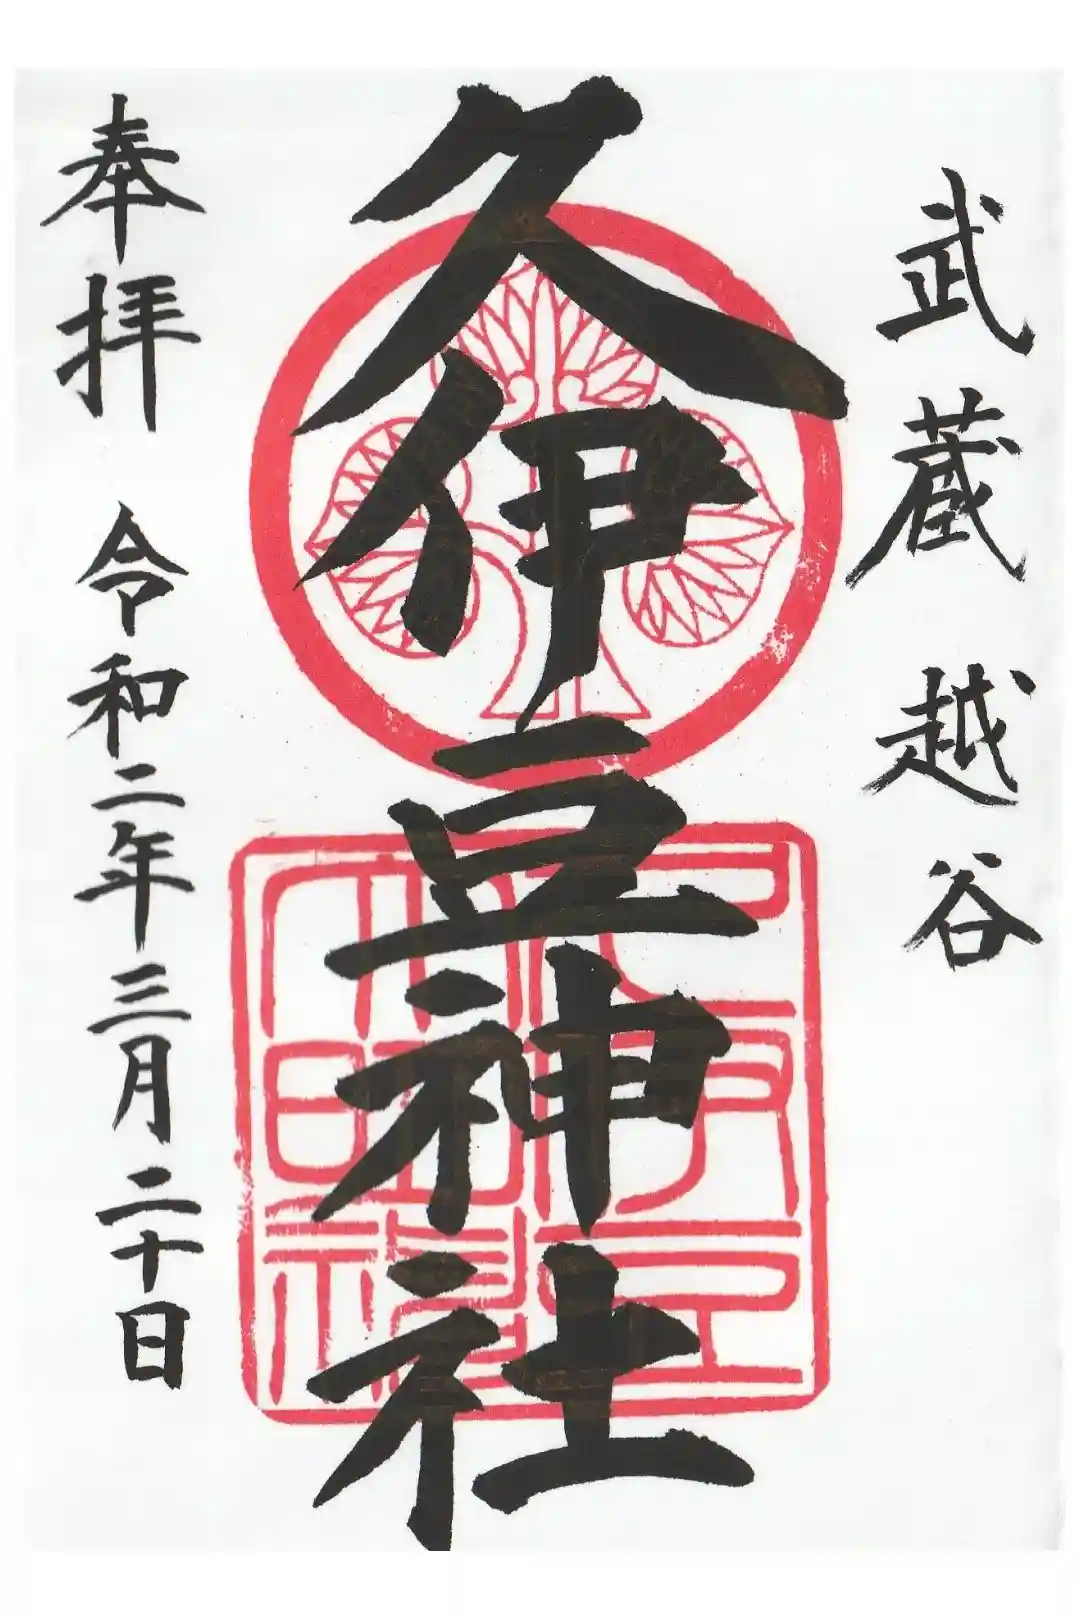 武蔵越谷
久伊豆神社
奉拝 令和二年三月二十日